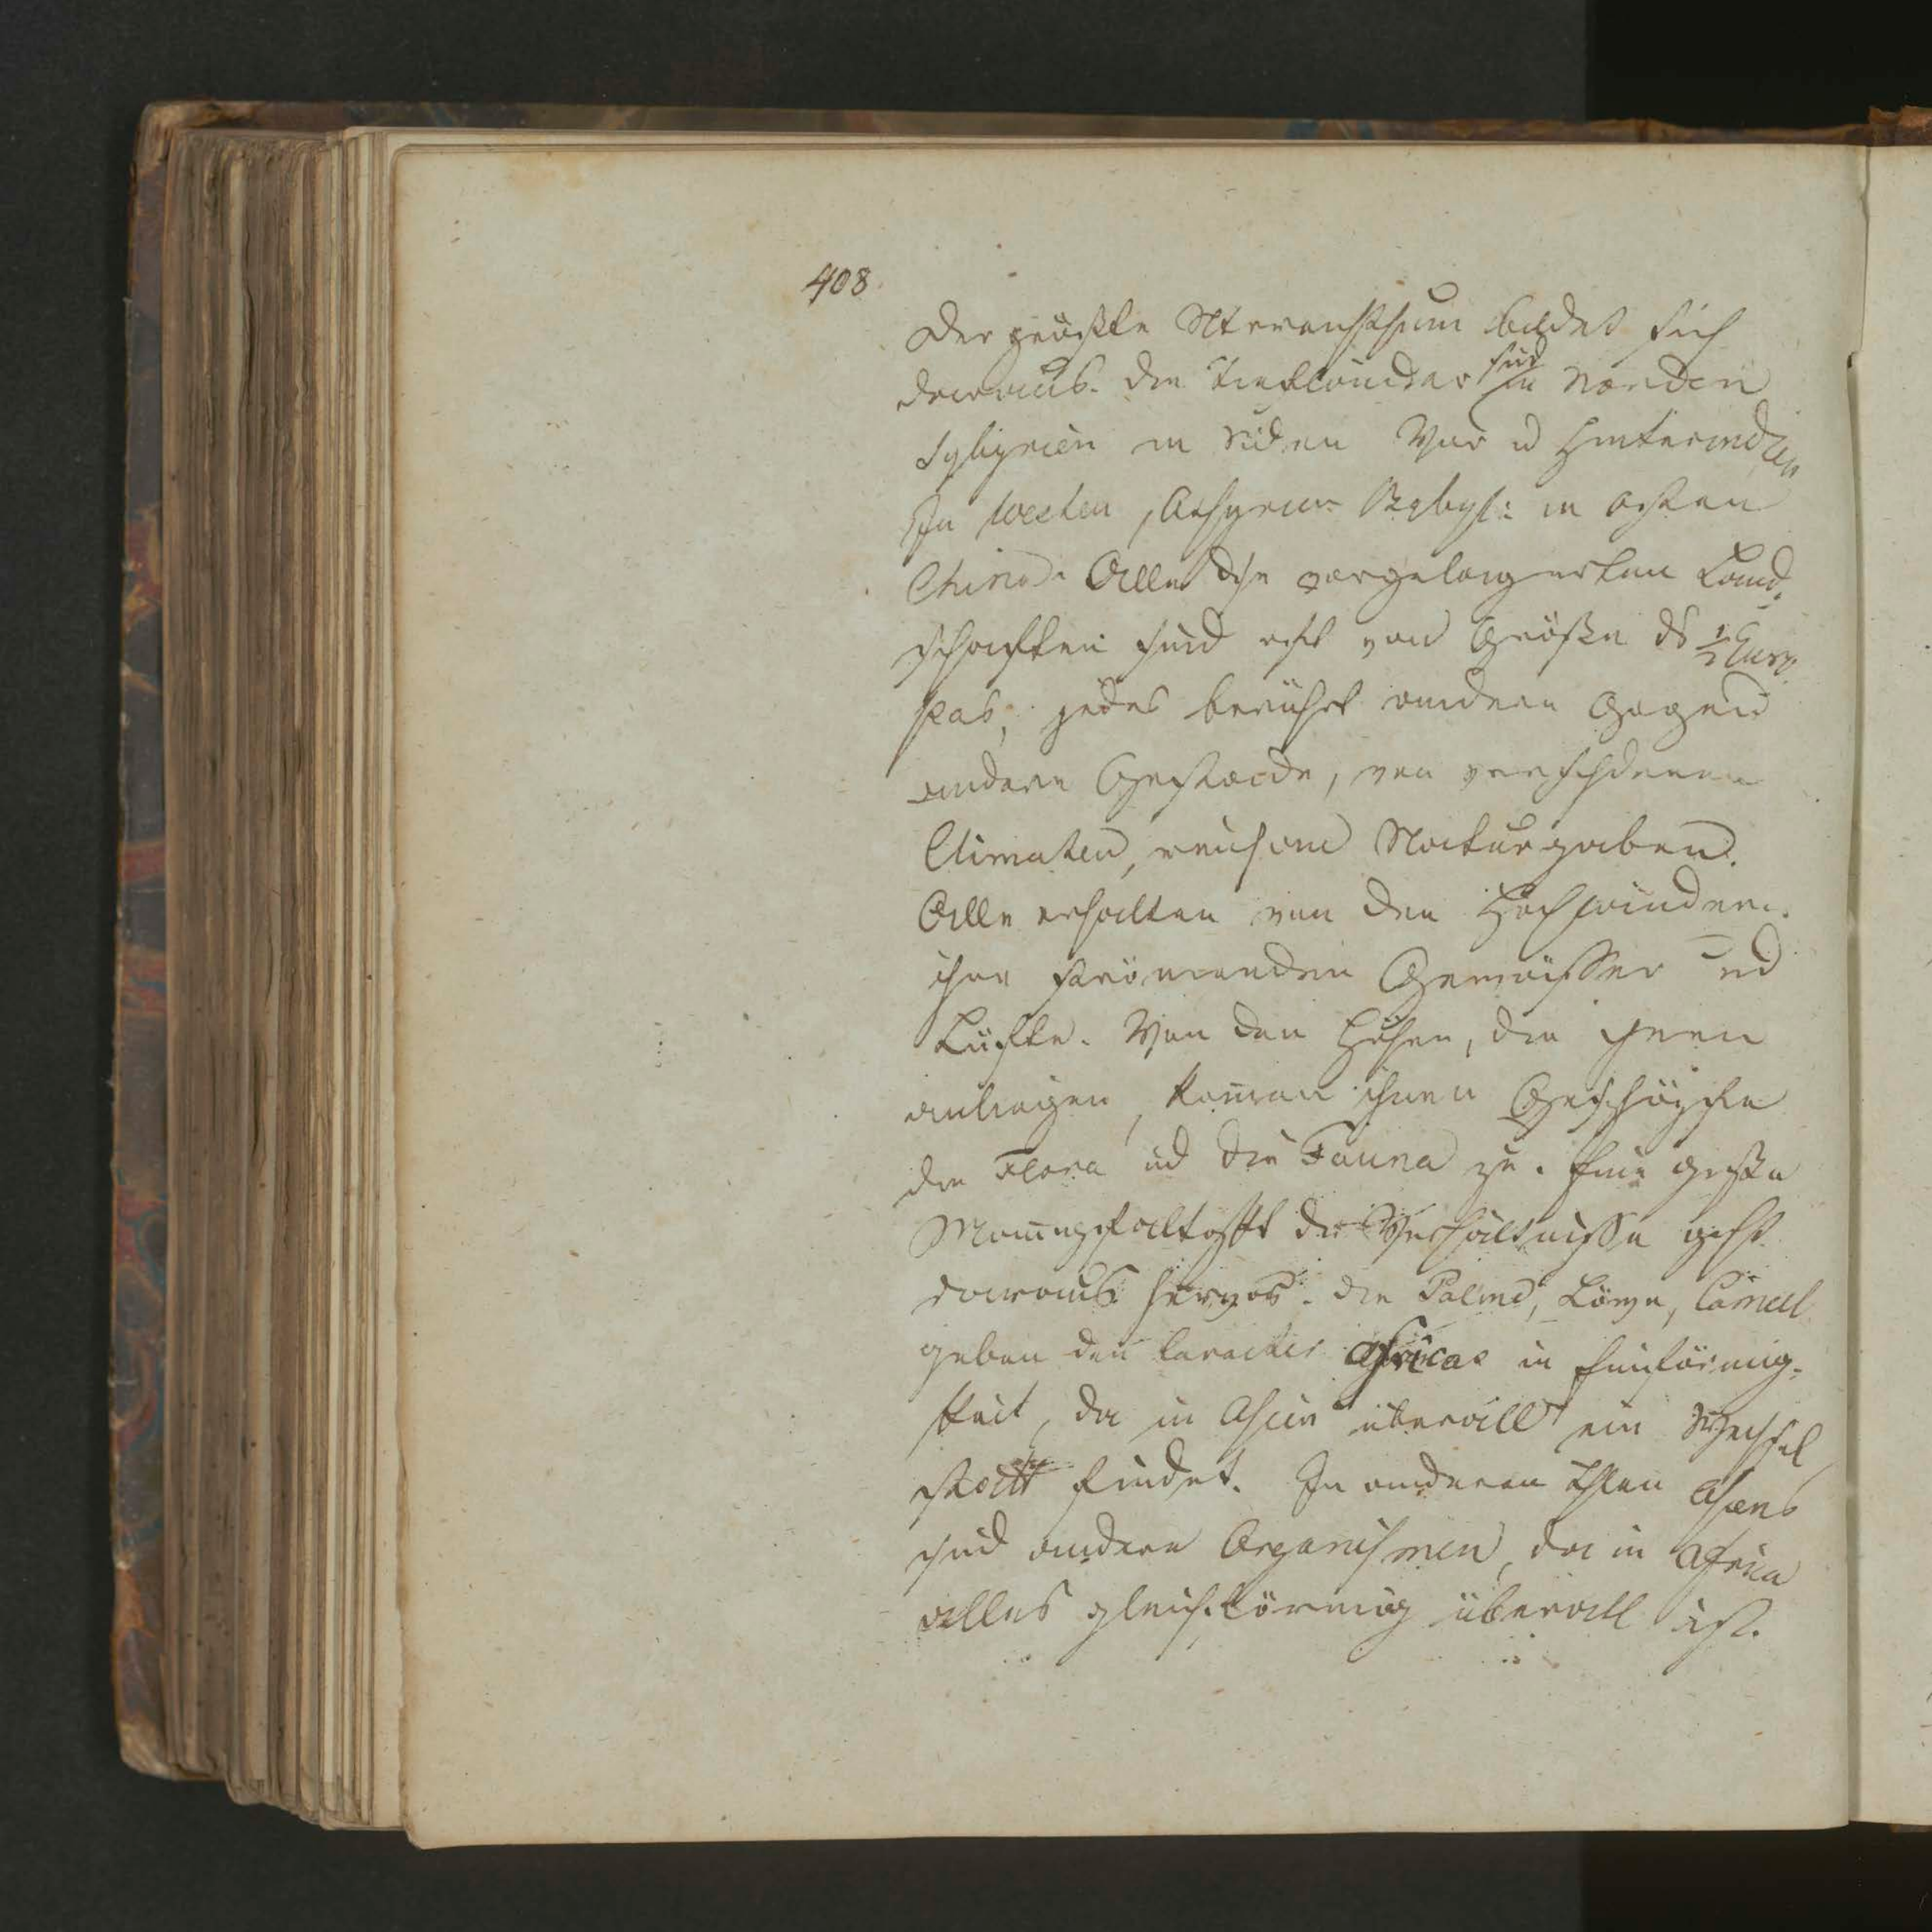 408.
Der größte Stromreichthum bildet sich
daraus. Die Tiefländer sind in Norden
Sybirien in Süden Vor u Hinterindien
In Westen, Assyrien Babyl: in Osten
China. Alle diese vorgelagerten Land,
schaften sind oft von Größe ds ½ Euro
pas, jedes berührt andere Gegend
andere Gestade, von verschdenen
Climaten, reichen Naturgaben.
Alle erhalten von den Hochländern
ihre strömenden Gewässer und
Lüfte. Von den Höhen, die ihnen
anliegen, komen ihnen Geschöpfe
die Flora ud die Fauna zu. Eine große
Mannigfaltigkt der Verhältnisse geht
daraus hervor. Die Palme, Löwe, Cameel
geben den Caracter Africas in Einförmig-
keit, da in Asien überall ein Wechsel
statt findet. In anderen Thlen Asiens
sind andere Organismen, da in Africa
alles gleichförmig überall ist.